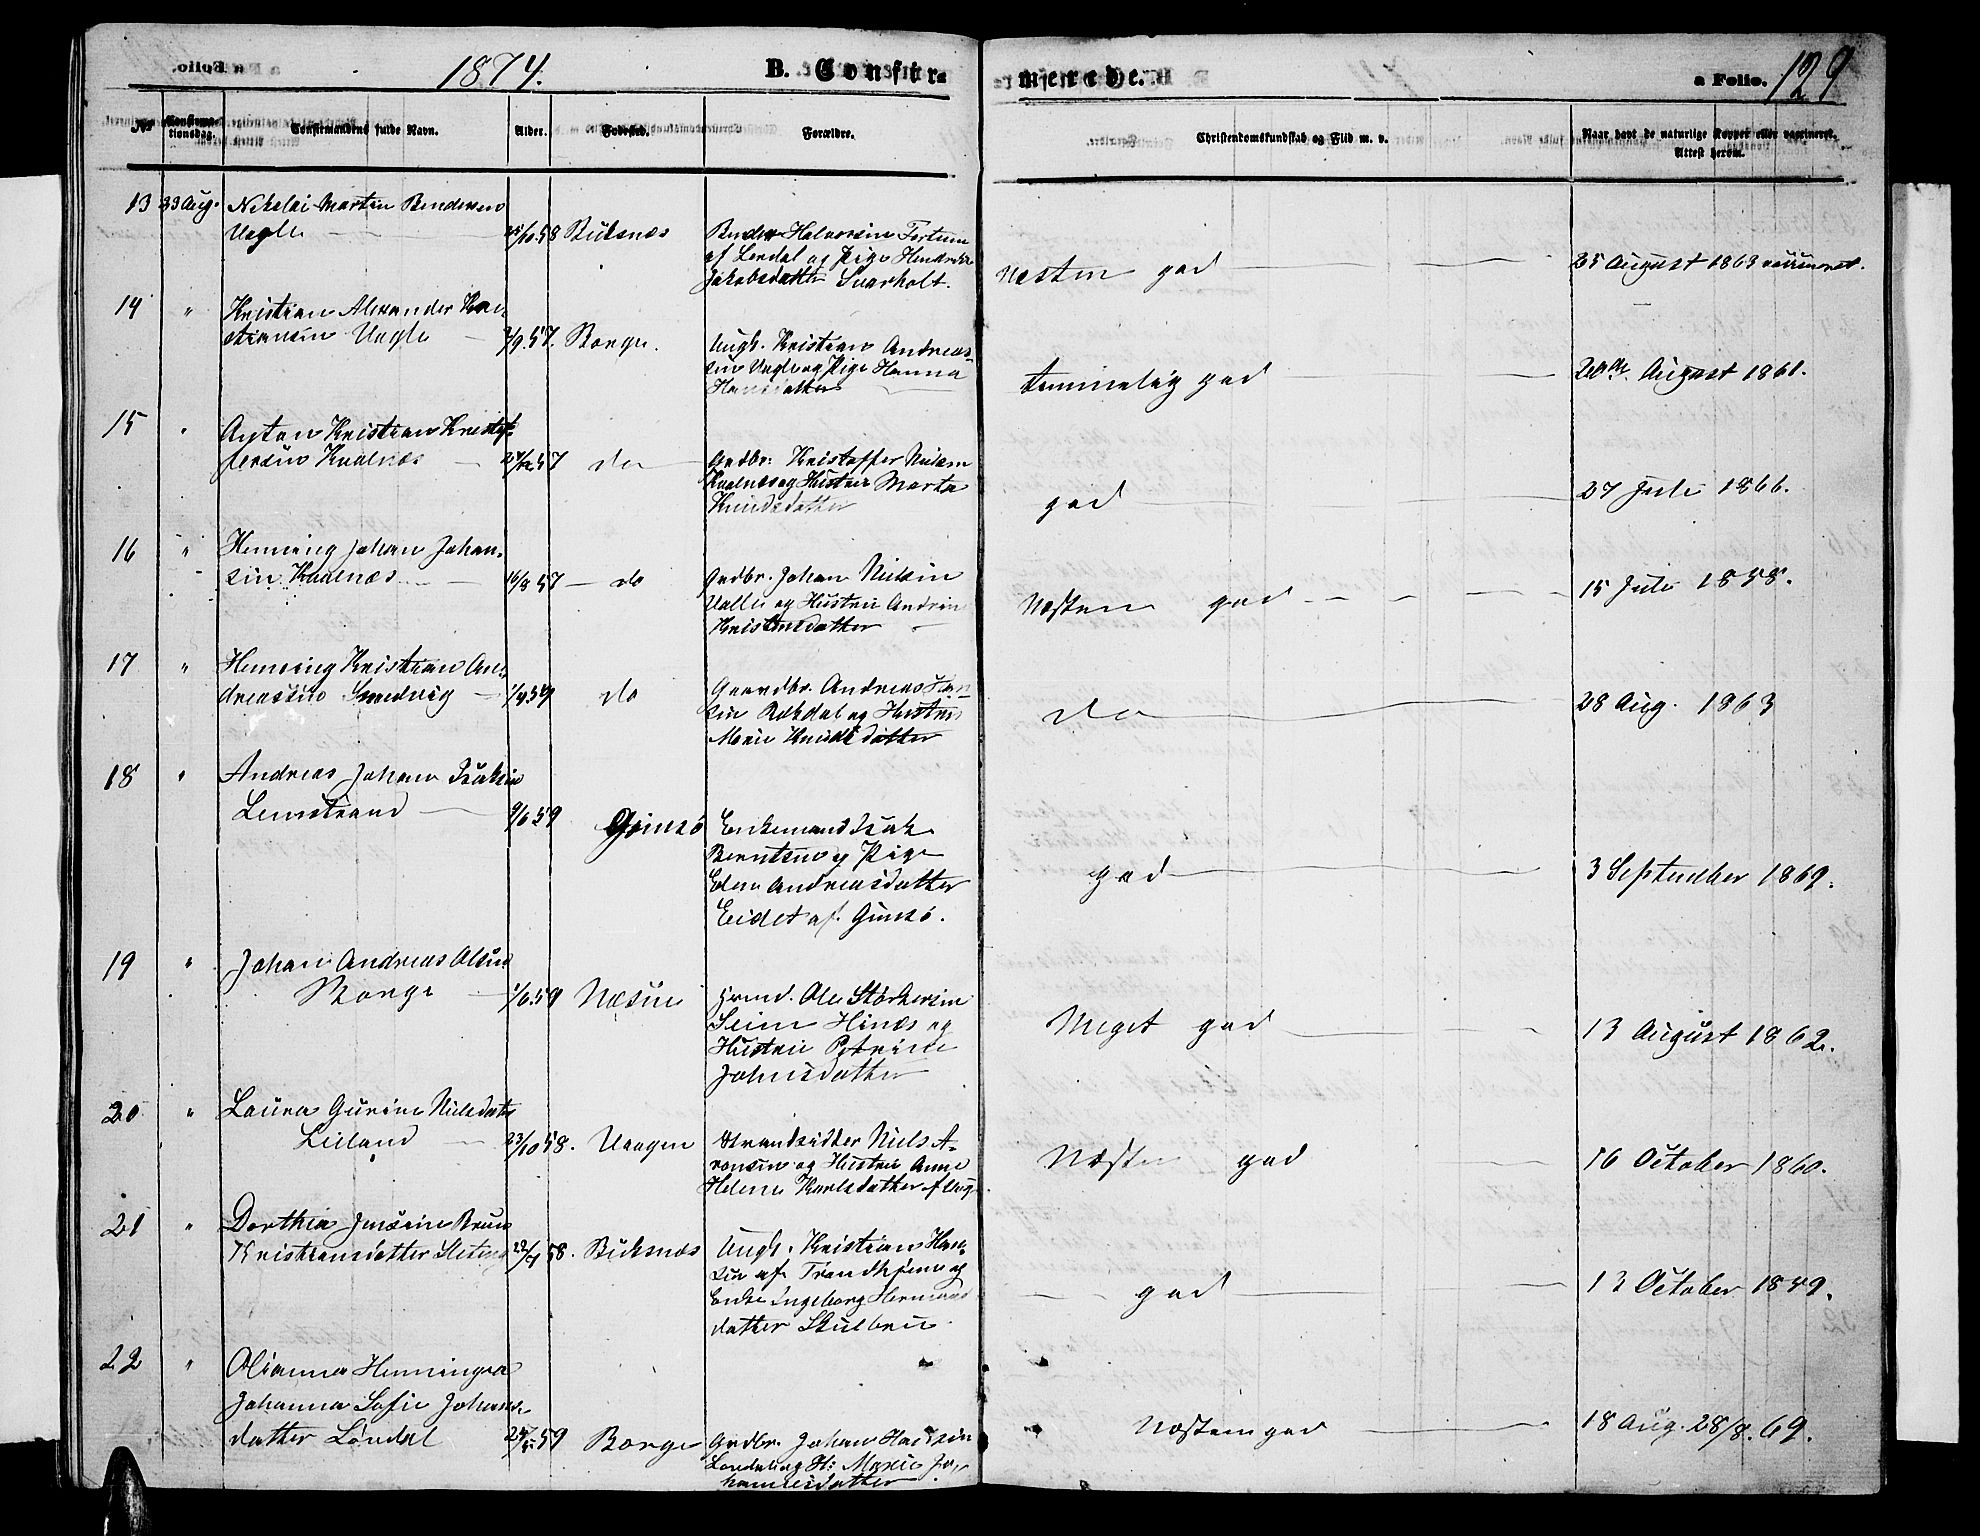 a Folio.
1874.
B. Confir-
merede.
a Folio. 129
Nr
Confirmationsdag.
Confirmandens fulde Navn.
Alder.
Fødested.
Forældre.
Christendomskundskab og Flid m. v.
Naar havt de naturlige Kopper eller vaccineret.
Attest herom.
13 23 Aug. Nikolai Martin
Vagle /10 58 Buksnæs
af Lendal og Pige
Jakobsdatter Svarholt.
Næsten god
25 August 1863 vaccineret.
14 " Kristian Alexander Kri-
stiansen Vagle 2/9 57. Borge.
Ungk. Kristian Andreas-
sen Vagle og Pige Hanna
Hansdatter
temmelig god
20de August 1861.
15 " Anton Kristian Kristof-
fersen Kvalnæs 24/12 57 do
Grdbr. Kristoffer Nielsen
Kvalnes og Hustru Marta
Knudsdatter
god
27 Juli 1866.
16 " Henning Johan Johan-
sen Kvalnæs 16/8 57 do
Grdbr. Johan Nielsen
Valle og Hustru
Kristensdatter
Næsten god
15 Juli 1858.
17 " Henning Kristian An-
dreassen Smedvig 1/4 59 do
Gaardbr. Andreas Han-
sen og Hustru
Marie Knudsdatter
do
28 Aug. 1863
18 " Andreas Johan Isaksen
Limstrand 9/6 59 Gimsø
Enkemand Isak
Berntsen og Pige
Andreasdatter
Eidet af Gimsø.
god
3 September 1869.
19 " Johan Andreas Olsen
Borge 1/6 59 Næsne
Ole Størkersen
Hinæs og
Hustru Petrine
Johnsdatter
Meget god
13 August 1862.
20 " Laura Gurine Nielsdatr
Leiland 23/10 58. Vaagen
Strandsidder Niels A-
ronsen og Hustru Anne
Helene Karlsdatter
Næsten god
16 October 1860.
21 " Dorthea Jensine Brun
Kristiansdatter 58. Buksnæs
Ungk. Kristian Han-
sen af Trondhjem og
Enke Ingeborg
datter Skulbru
god
13 October 1859.
22 " Olianna Henningea
Johanna Sofie Johans-
datter Løndal 59 Borge
Grdbr. Johan Hansen
Løndal og H: Marie Jo-
hannesdatter
Næsten god
18 Aug. 28/8. 69.